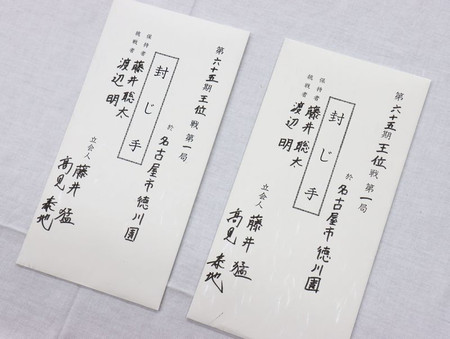 第六十五期王位戦第一局
於 名古屋市徳川園
封じ手
保持者 藤井聡太
挑戦者 渡辺 明
立会人 藤井 猛
高見 泰地
第六十五期王位戦第一局
於 名古屋市徳川園
封じ手
保持者 藤井聡太
挑戦者 渡辺 明
立会人 藤井 猛
高見 泰地